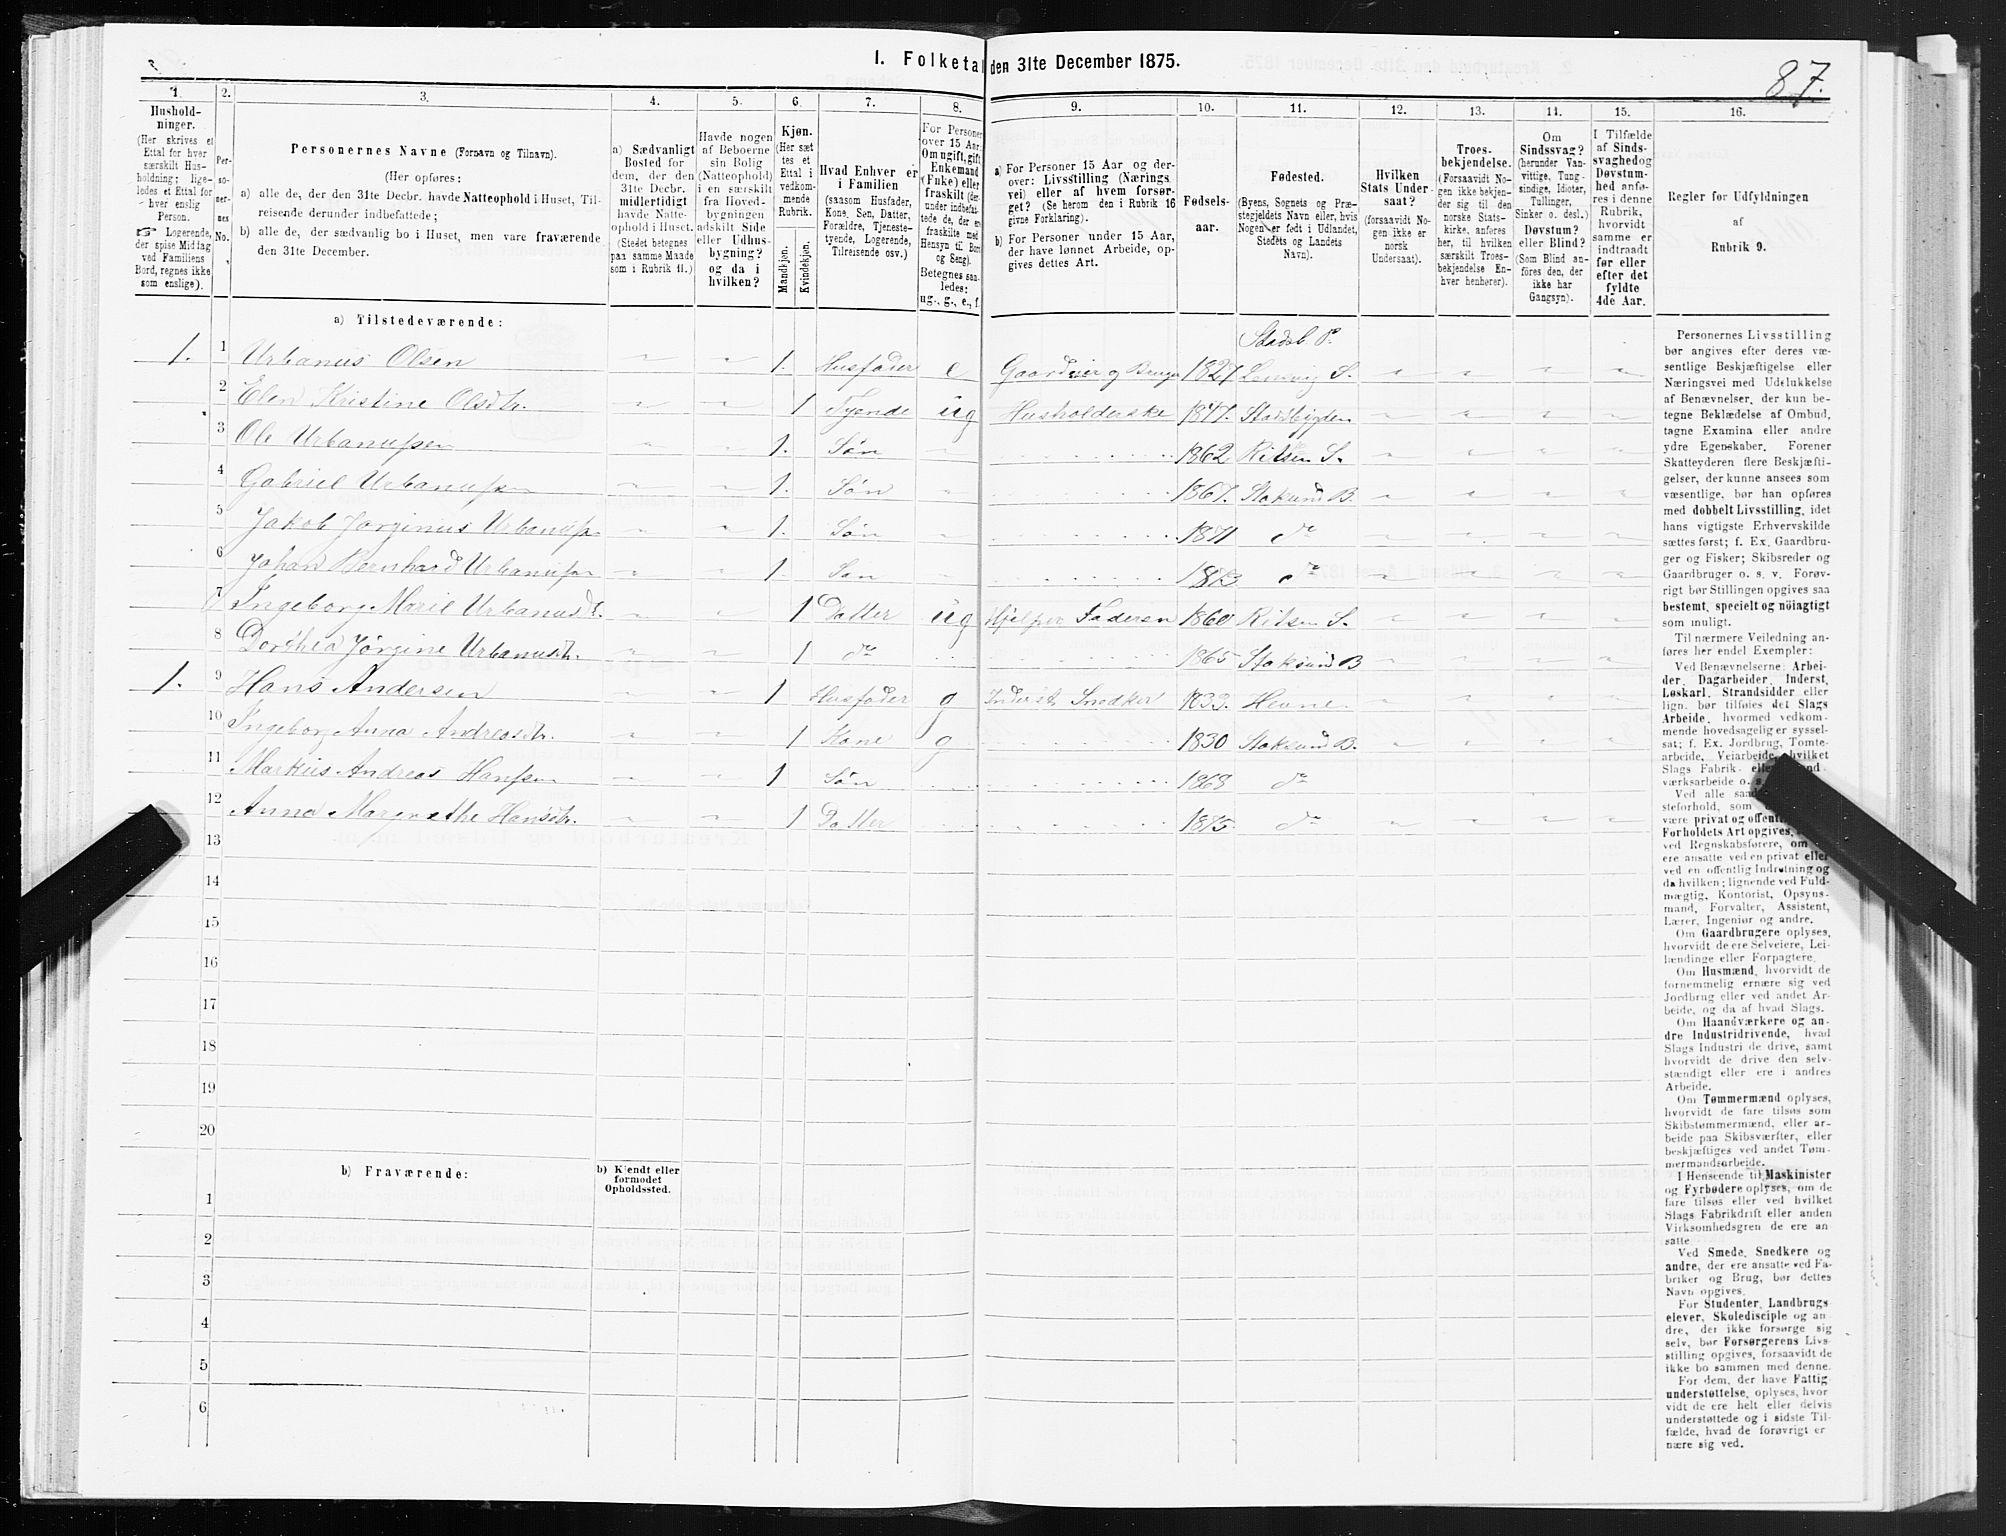 I. Folketal den 31te December 1875.
87.
1.
2.
3.
4.
5.
6.
7.
8.
9.
10.
11.
12.
13.
14.
15.
16.
Hushold-
ninger.
(Her skrives et
Ettal for hver
særskilt Hus-
holdning; lige-
ledes et Ettal for
hver enslig
Person.
☞ Logerende,
der spise Middag
ved Familiens
Bord, regnes ikke
som enslige).
Per-
so-
ner-
nes
No.
Personernes Navne (Fornavn og Tilnavn).
(Her opføres:
a) alle de, der den 31te Decbr. havde Natteophold i Huset, Til-
reisende derunder indbefattede;
b) alle de, der sædvanlig bo i Huset, men vare fraværende
den 31te December.
a) Sædvanligt
Bosted for
dem, der den
31te Decbr.
midlertidigt
havde Natte-
ophold i Huset.
(Stedet betegnes
paa samme Maade
som i Rubrik 11.)
Havde nogen
af Beboerne
sin Bolig
(Natteophold)
i en særskilt
fra Hoved-
bygningen
adskilt Side
eller Udhus-
bygning?
og da i
hvilken?
Kjøn.
(Her sæt
tes et
Ettal i
vedkom-
mende
Rubrik.
Mandkjøn.
Kvindekjøn.
Hvad Enhver er
i Familien
(saasom Husfader,
Kone, Søn, Datter,
Forældre, Tjeneste-
tyende, Logerende,
Tilreisende osv.)
For Personer
over 15 Aar:
Om ugift, gift,
Enkemand
(Enke) eller
fraskilt
Betegnes saa-
ledes:
ug., g., e., f.
a) For Personer 15 Aar og der-
over: Livsstilling (Nærings-
vei) eller af hvem forsør-
get? (Se herom den i Rubrik 16
givne Forklaring).
b) For Personer under 15 Aar,
der have lønnet Arbeide, op-
gives dettes Art.
Fødsels-
aar.
Fødested.
(Byens, Sognets og Præ-
stegjeldets Navn eller, hvis
Nogen er født i Udlandet,
Stedets og Landets
Navn).
Hvilken
Stats Under-
saat?
(forsaavidt No-
gen ikke er
norsk
Undersaat).
Troes-
bekjendelse.
(Forsaavidt No-
gen ikke bekjen-
der sig til den
norske Stats-
kirke, anføres
her, til hvilken
særskilt Troes-
bekjendelse En-
hver henhører).
Om
Sindssvag?
(herunder Van-
vittige, Tung-
sindige, Idioter,
Tullinger,
Sinker o. desl.)
Døvstum?
eller Blind?
(Som Blind an-
føres den, der
ikke har
Gangsyn).
I Tilfælde
af Sinds-
svaghed og
Døvstum-
hed anfø-
res i denne
Rubrik,
hvorvidt
samme er
indtraadt
før eller
efter det
fyldte
4de Aar.
Regler for Udfyldningen
af
Rubrik 9.
a) Tilstedeværende:
Stadsb. P.
1. 1 Urbanus Olsen 1. Husfader e Gaardeier og Bruger 1827 Lensvig S.
2 Elen Kristine Olsdtr. 1 Tyende ug Husholderske 1847. Stadsbygden
3 Ole Urbanussen 1. Søn 1862 Ritsen S.
4 Gabriel Urbanussen 1. Søn 1867. Stoksund B.
5 Jakob Jørginus Urbanussn 1. Søn 1871 do
6 Johan Bernhard Urbanussn 1. Søn 1873 do
7 Ingeborg Marie Urbanusdt. 1 Datter ug Hjelper Faderen 1860 Ritsen S.
8 Dorthea Jørgine Urbanusdt. 1 do 1865 Stoksund B
1. 9 Hans Andersen 1 Husfader g Inderst Snedker 1833. Hevne
10 Ingeborg Anna Andreasdt. 1 Kone g 1830 Stoksund B.
11 Markus Andreas Hansen 1 Søn 1868 do
12 Anna Margrethe Hansdtr. 1 Datter 1875. do
13
14
15
16
17
18
19
20
b) Fraværende:
b) Kjendt eller
formodet
Opholdssted.
1
2
3
4
5
6
Personernes Livsstilling
bør angives efter deres væ-
sentlige Beskjæftigelse eller
Næringsvei med Udelukkelse
af Benævnelser, der kun be-
tegne Beklædelse af Ombud,
tagne Examina eller andre
ydre Egenskaber. Forener
Skatteyderen flere Beskjæfti-
gelser, der kunne ansees som
væsentlige, bør han opføres
med dobbelt Livsstilling, idet
hans vigtigste Erhvervskilde
sættes først; f. Ex. Gaardbru-
ger og Fisker; Skibsreder og
Gaardbruger o. s. v. Forøv-
rigt bør Stillingen opgives saa
bestemt, specielt og nöiagtigt
som muligt.
Til nærmere Veiledning an-
føres her endel Exempler:
Ved Benævnelserne: Arbei-
der, Dagarbeider, Inderst,
Løskarl, Strandsidder eller
lign. bør tilføies det Slags
Arbeide, hvormed vedkom-
mende hovedsagelig er syssel-
sat; f. Ex. Jordbrug, Tomte-
arbeide, Veiarbeide, hvilket
Slags Fabrik-
værksarbeide o. s.
Ved alle
steforhold, som
være privat og
Forholdets Art opgives,
ved Regnskabsførere, om
ere ansatte ved en privat eller
ved en offentlig Indretning og
da hvilken; lignende ved Fuld-
mægtig, Kontorist, Opsyns-
mand, Forvalter, Assistent,
Lærer, Ingeniør og andre.
Om Gaardbrugere oplyses,
hvorvidt de ere Selveiere, Lei-
lændinge eller Forpagtere.
Om Husmænd, hvorvidt de
fornemmelig ernære sig ved
Jordbrug eller ved andet Ar-
beide, og da af hvad Slags.
Om Haandværkere og an-
dre Industridrivende, hvad
Slags Industri de drive, samt
hvorvidt de drive den selv-
stændigt eller ere i andres
Arbeide.
Om Tømmermænd oplyses,
hvorvidt de fare tilsøs som
Skibstømmermænd, eller ar-
beide paa Skibsværfter, eller
beskjæftiges ved andet Tøm-
mermandsarbeide.
I Henseende til Maskinister
og Fyrbødere oplyses, om de
fare tilsøs eller ved hvilket
Slags Fabrikdrift eller anden
Virksomhedsgren de ere an-
satte
Ved Smede, Snedkere og
andre, der ere ansatte ved Fa-
briker og Brug, bør dettes
Navn opgives.
For Studenter, Landbrugs-
elever, Skoledisciple og an-
dre, der ikke forsørge sig
selv, bør Forsørgerens Livs-
stilling opgives, forsaavidt de
ikke bo sammen med denne.
For dem, der have Fattig-
understøttelse, oplyses, hvor-
vidt de ere helt eller delvis
understøttede og i sidste Til-
fælde, hvad de forøvrigt er-
nære sig ved.